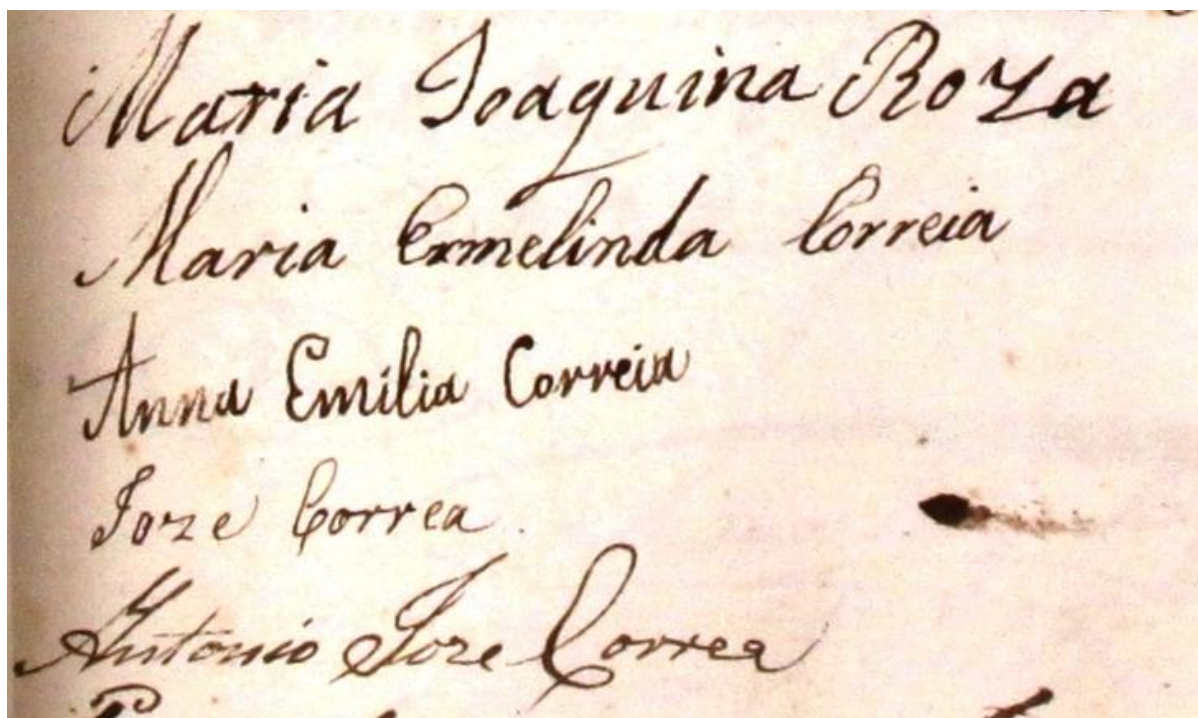 Maria Joaquina Roza
Maria Ermelinda Correia
Anna Emilia Correia
Joze Correa
Antonio Joze Correa